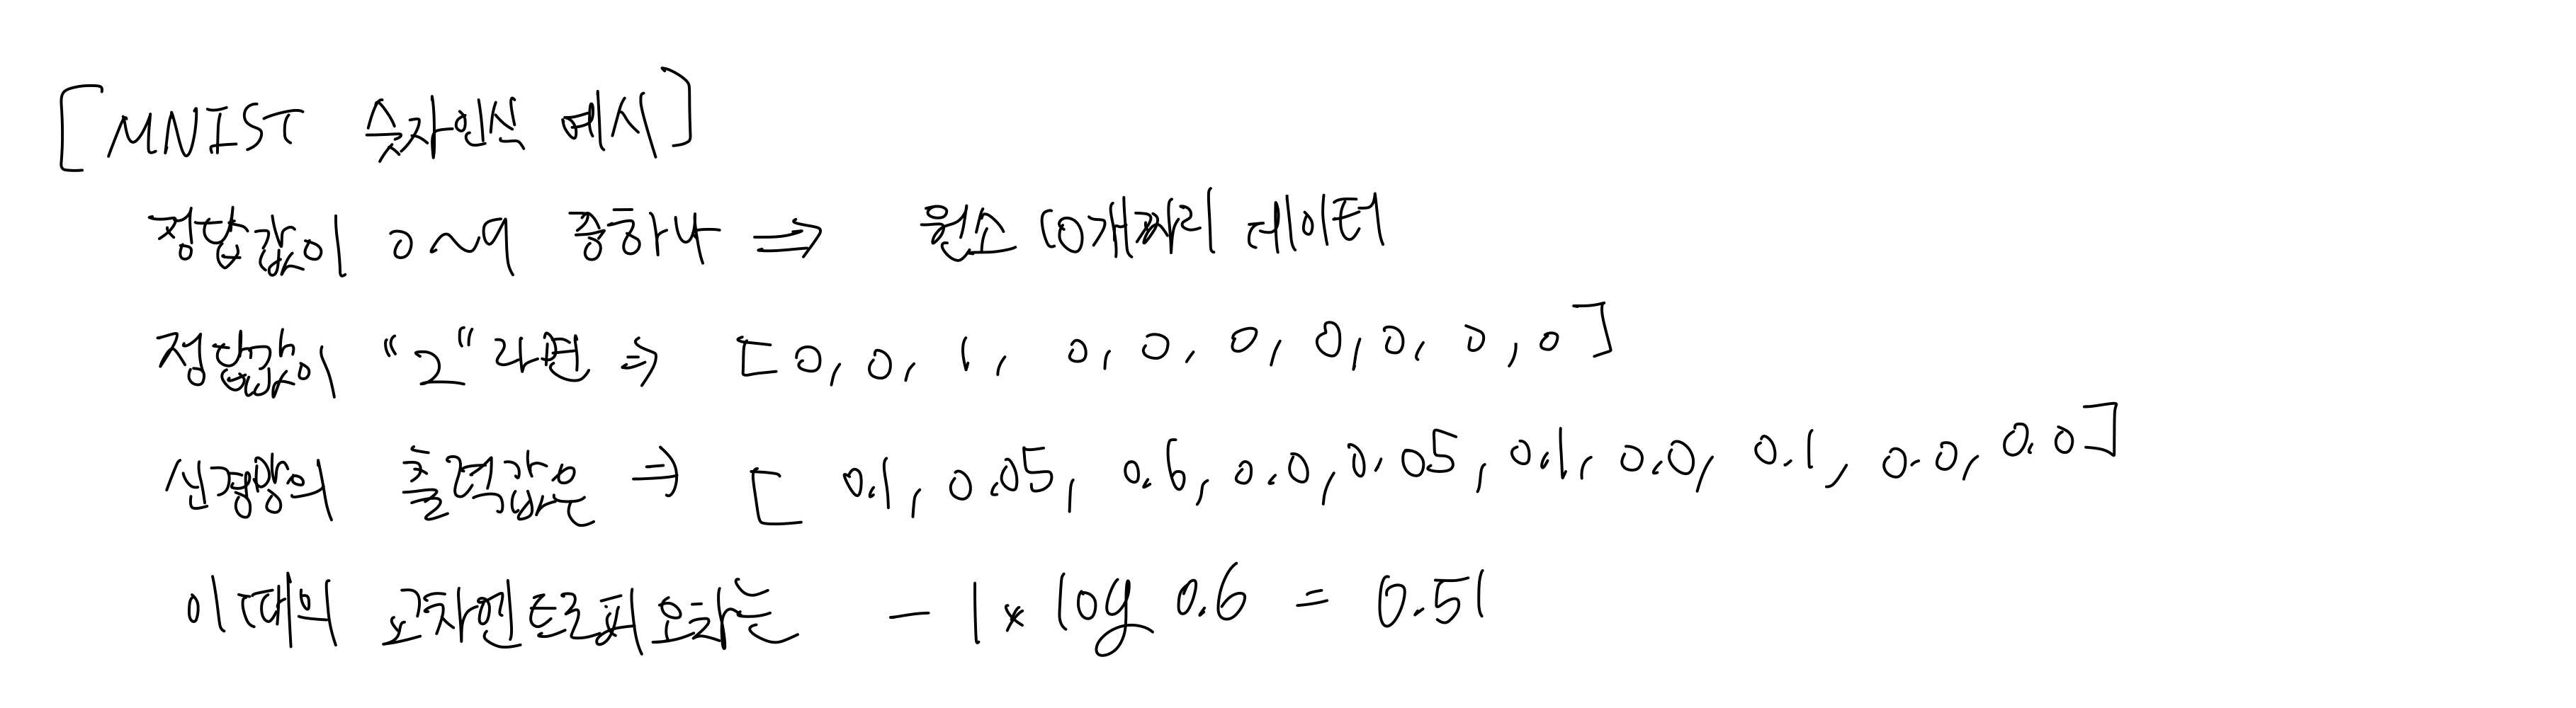 [MNIST 숫자인식 예시]
정답값이 0~9 중하나 ⇒ 원소 10개짜리 데이터
정답값이 "2"라면 ⇒ [0, 0, 1, 0, 0, 0, 0, 0, 0, 0]
신경망의 출력값은 ⇒ [0.1, 0.05, 0.6, 0.0, 0.05, 0.1, 0.0, 0.1, 0.0, 0.0]
이때의 교차엔트로피오차는 - 1 × log 0.6 = 0.51